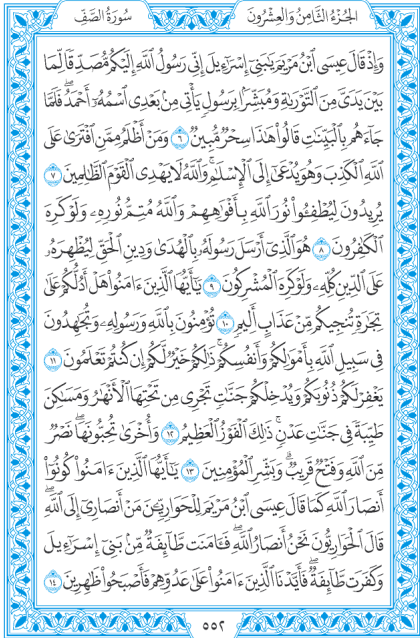 الجُزْءُ الثَّامِنُ وَالعِشْرُونَ سُورَةُ الصَّفِّ
وَإِذْ قَالَ عِيسَى ٱبْنُ مَرْيَمَ يَـٰبَنِىٓ إِسْرَٰٓءِيلَ إِنِّى رَسُولُ ٱللَّهِ إِلَيْكُم مُّصَدِّقًا لِّمَا
بَيْنَ يَدَىَّ مِنَ ٱلتَّوْرَىٰةِ وَمُبَشِّرًۢا بِرَسُولٍ يَأْتِى مِنۢ بَعْدِى ٱسْمُهُۥٓ أَحْمَدُ ۖ فَلَمَّا
جَآءَهُم بِٱلْبَيِّنَـٰتِ قَالُوا۟ هَـٰذَا سِحْرٌ مُّبِينٌ ٦ وَمَنْ أَظْلَمُ مِمَّنِ ٱفْتَرَىٰ عَلَى
ٱللَّهِ ٱلْكَذِبَ وَهُوَ يُدْعَىٰٓ إِلَى ٱلْإِسْلَـٰمِ ۚ وَٱللَّهُ لَا يَهْدِى ٱلْقَوْمَ ٱلظَّـٰلِمِينَ ٧
يُرِيدُونَ لِيُطْفِـُٔوا۟ نُورَ ٱللَّهِ بِأَفْوَٰهِهِمْ وَٱللَّهُ مُتِمُّ نُورِهِۦ وَلَوْ كَرِهَ
ٱلْكَـٰفِرُونَ ٨ هُوَ ٱلَّذِىٓ أَرْسَلَ رَسُولَهُۥ بِٱلْهُدَىٰ وَدِينِ ٱلْحَقِّ لِيُظْهِرَهُۥ
عَلَى ٱلدِّينِ كُلِّهِۦ وَلَوْ كَرِهَ ٱلْمُشْرِكُونَ ٩ يَـٰٓأَيُّهَا ٱلَّذِينَ ءَامَنُوا۟ هَلْ أَدُلُّكُمْ عَلَىٰ
تِجَـٰرَةٍ تُنجِيكُم مِّنْ عَذَابٍ أَلِيمٍ ١٠ تُؤْمِنُونَ بِٱللَّهِ وَرَسُولِهِۦ وَتُجَـٰهِدُونَ
فِى سَبِيلِ ٱللَّهِ بِأَمْوَٰلِكُمْ وَأَنفُسِكُمْ ۚ ذَٰلِكُمْ خَيْرٌ لَّكُمْ إِن كُنتُمْ تَعْلَمُونَ ١١
يَغْفِرْ لَكُمْ ذُنُوبَكُمْ وَيُدْخِلْكُمْ جَنَّـٰتٍ تَجْرِى مِن تَحْتِهَا ٱلْأَنْهَـٰرُ وَمَسَـٰكِنَ
طَيِّبَةً فِى جَنَّـٰتِ عَدْنٍ ۚ ذَٰلِكَ ٱلْفَوْزُ ٱلْعَظِيمُ ١٢ وَأُخْرَىٰ تُحِبُّونَهَا ۖ نَصْرٌ
مِّنَ ٱللَّهِ وَفَتْحٌ قَرِيبٌ ۗ وَبَشِّرِ ٱلْمُؤْمِنِينَ ١٣ يَـٰٓأَيُّهَا ٱلَّذِينَ ءَامَنُوا۟ كُونُوٓا۟
أَنصَارَ ٱللَّهِ كَمَا قَالَ عِيسَى ٱبْنُ مَرْيَمَ لِلْحَوَارِيِّـۧنَ مَنْ أَنصَارِىٓ إِلَى ٱللَّهِ ۖ
قَالَ ٱلْحَوَارِيُّونَ نَحْنُ أَنصَارُ ٱللَّهِ ۖ فَـَٔامَنَت طَّآئِفَةٌ مِّنۢ بَنِىٓ إِسْرَٰٓءِيلَ
وَكَفَرَت طَّآئِفَةٌ ۖ فَأَيَّدْنَا ٱلَّذِينَ ءَامَنُوا۟ عَلَىٰ عَدُوِّهِمْ فَأَصْبَحُوا۟ ظَـٰهِرِينَ ١٤
٥٥٢